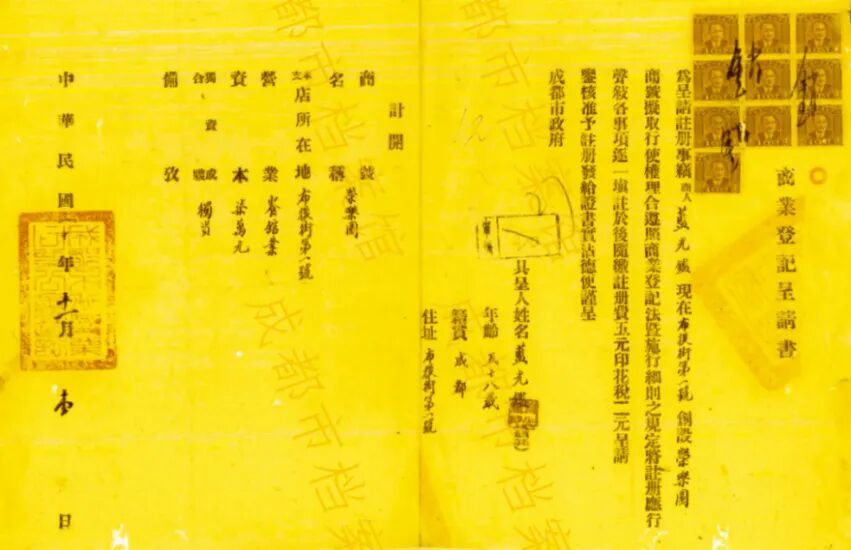 商業登記呈請書
為呈請註冊事竊商人藍光鑑現在布後街第一號創設榮樂園
商號擬取行使權理合遵照商業登記法暨施行細則之規定將註冊應行
聲敘各事項逐一填註於後隨繳註冊費五元印花稅二元呈請
鑒核准予註冊發給證書實沾德便謹呈
成都市政府
具呈人姓名藍光鑑
年齡五十八歲
籍貫成都
住址布後街第一號
計開
商號名稱 榮樂園
本支店所在地 布後街第一號
營業 餐館業
資本 柒萬元
獨資或合夥 獨資
備攷
中華民國 十年十一月 日
成都市檔案館
成都市檔案